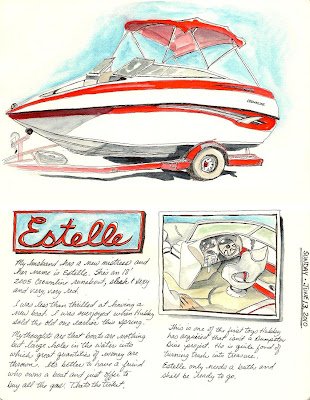 CROWNLINE
Estelle
My husband has a new mistress and
her name is Estelle. She's an 18'
2005 Crownline runabout, sleek & very
and very, very red.
I was less than thrilled at having a
new boat. I was overjoyed when Hubby
sold the old one earlier this spring.
My thoughts are that boats are nothing
but large holes in the water into
which great quantities of money are
thrown. It's better to have a friend
who owns a boat and just offer to
buy all the gas. That's the ticket.
This is one of the first toys Hubby
has acquired that isn't a Dumpster
Dive project. He is quite fond of
turning trash into treasure.
Estelle only needs a bath and
she'll be ready to go.
SUNDAY - JUNE 13, 2010